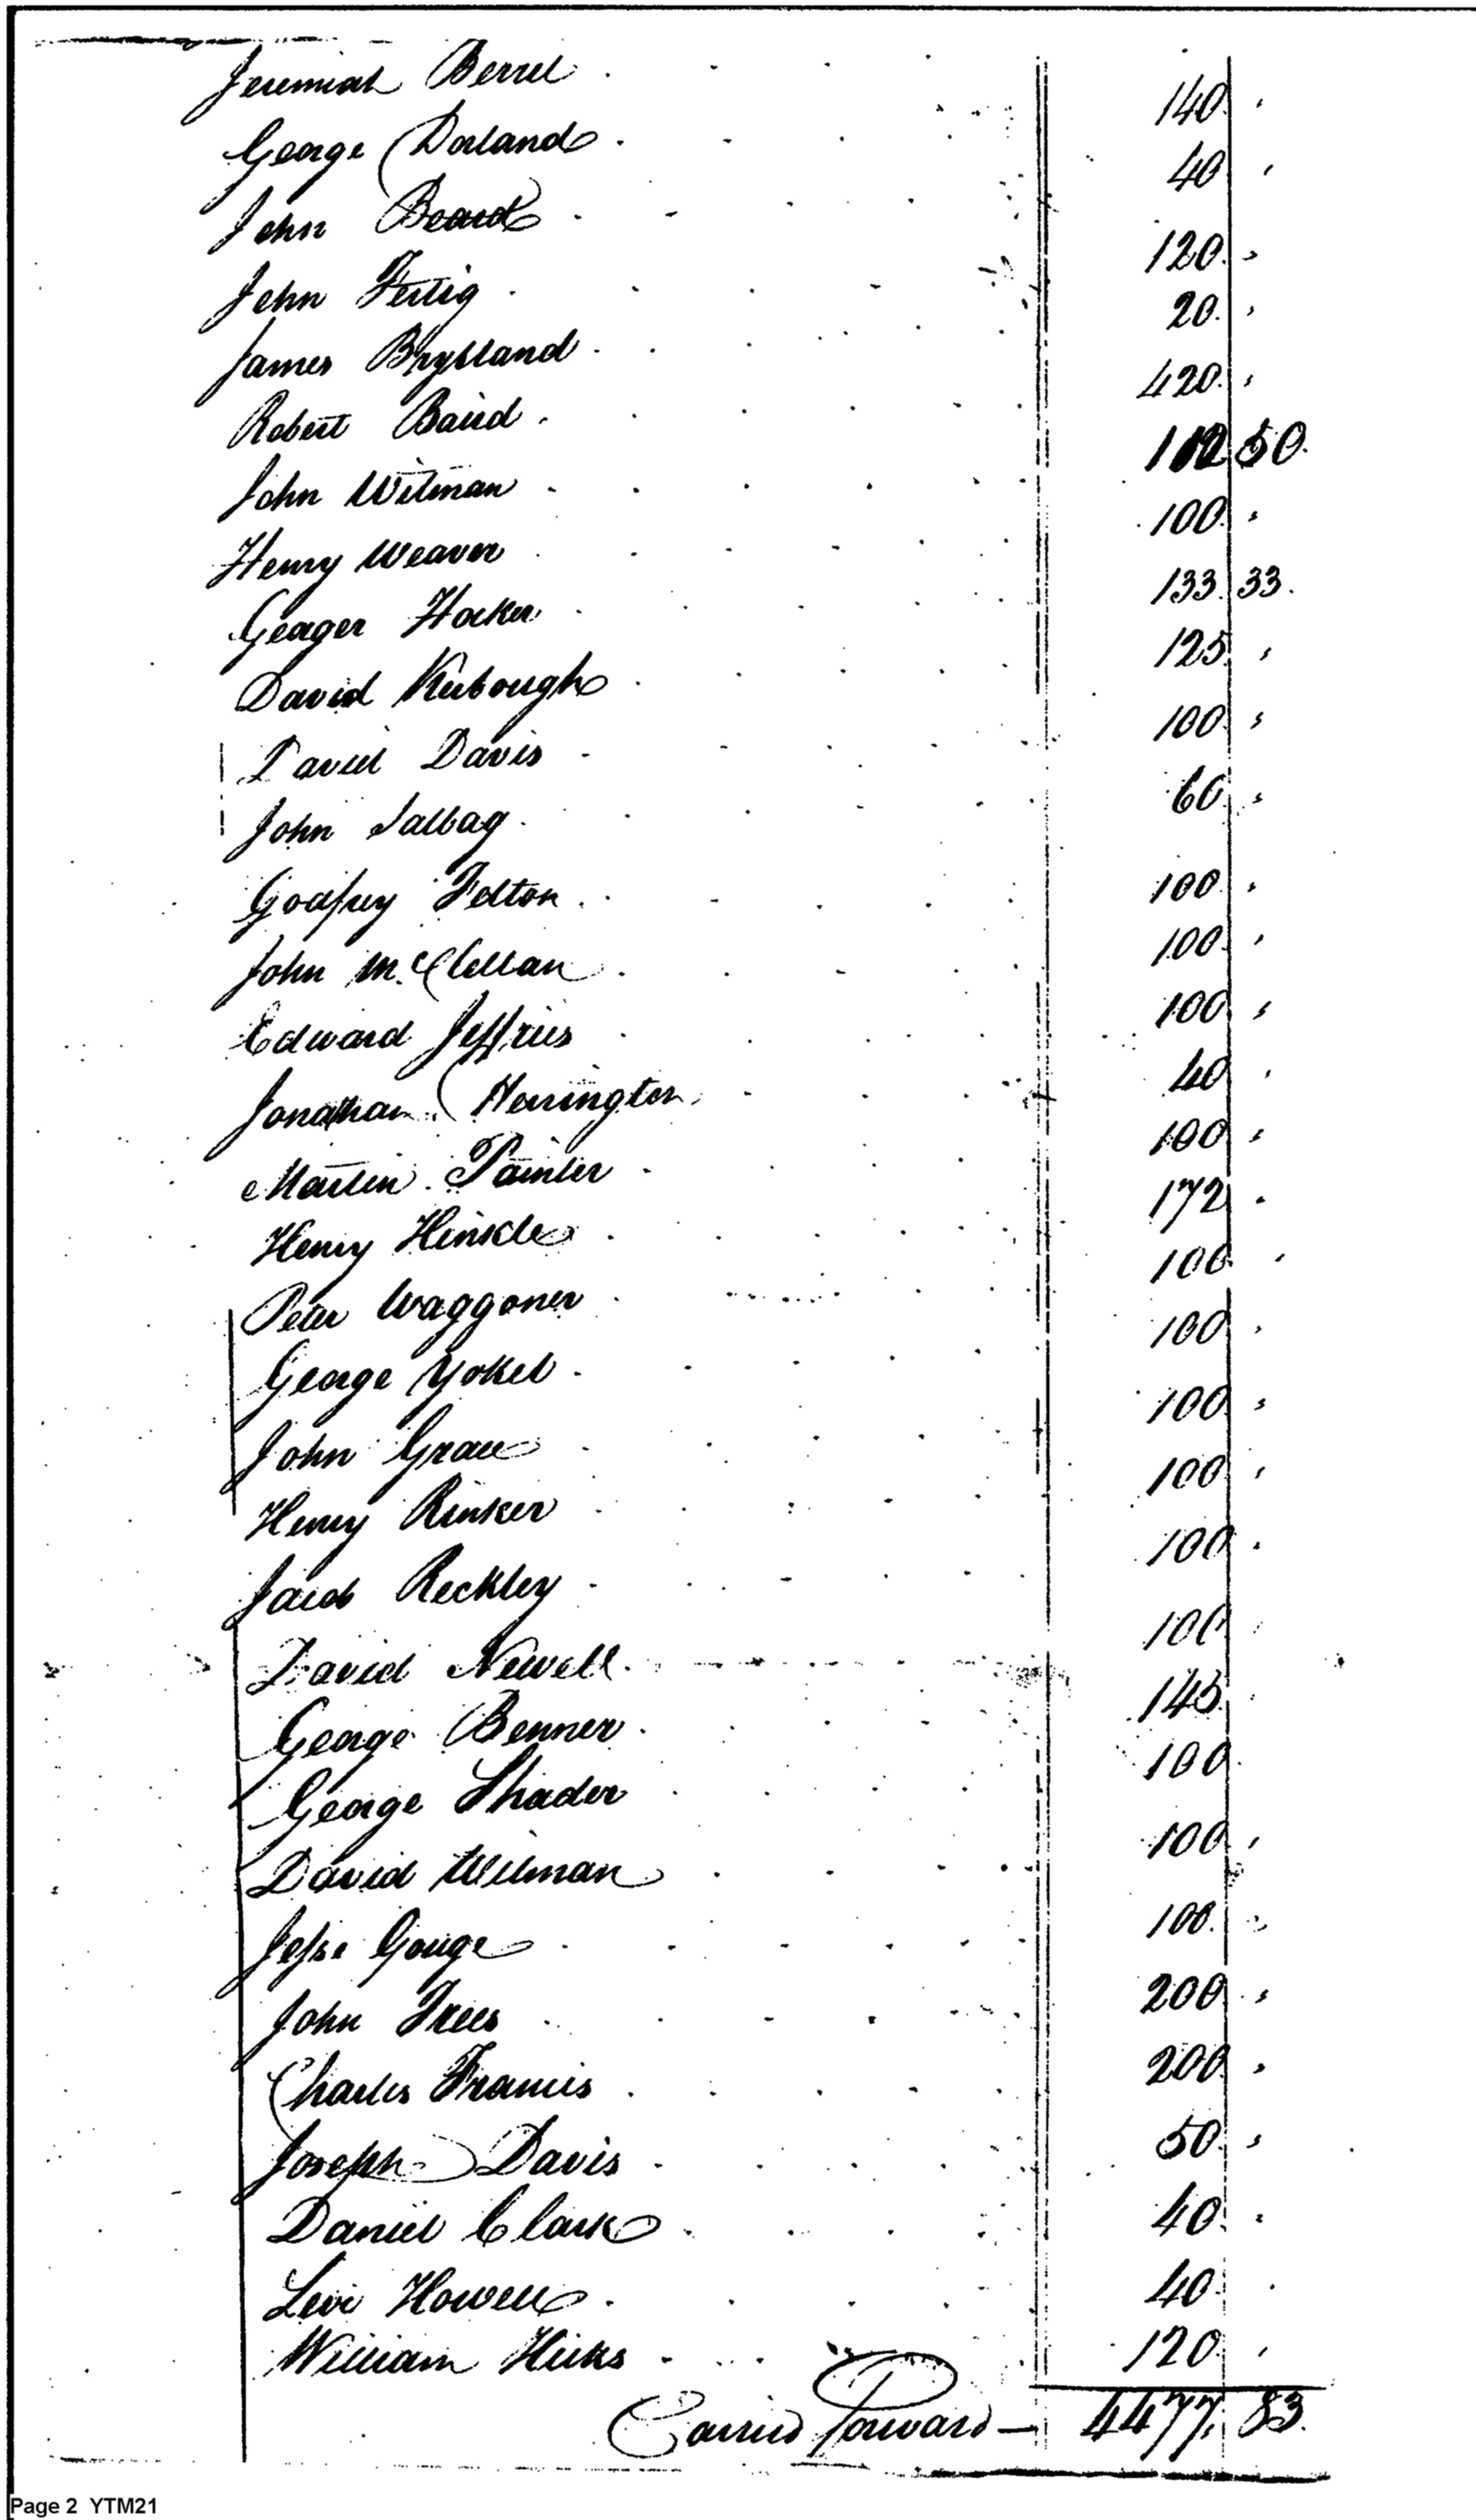 Jeremiah Berrel
George Dorland
John Beard
John Fertig
James Brysland
Robert Baird
John Witman
Henry Weaver
Geager Hocker
David Kerbough
David Davis
John Salbag
Godfrey Felton
John McClellan
Edward Jeffries
Jonathan Herrington
Martin Painter
Henry Hinkle
Peter Waggoner
George Yokel
John Grace
Henry Rinker
Jacob Reckley
David Newell
George Benner
George Shader
David Witman
Jesse Gouge
John Trees
Charles Francis
Joseph Davis
Daniel Clark
Levi Howell
William Hicks
Carried Forward —
140
40
120
20
420
112 50
100
133 33
125
100
60
100
100
100
40
100
172
100
100
100
100
100
100
145
100
100
100
200
200
50
40
40
120
4477 83
Page 2 YTM21